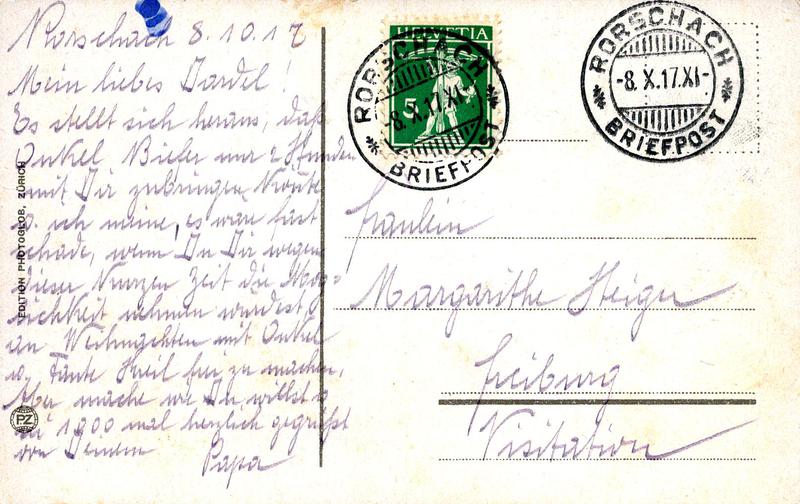 Rorschach 8.10.17
Mein liebes Dardel!
Es stellt sich heraus, daß
Onkel Bieler nur 2 Stunden
mit Dir zubringen könnte
u. ich meine, es wäre fast
schade, wenn Du Dir wegen
dieser kurzen Zeit die Mög-
lichkeit nehmen würdest,
an Weihnachten mit Onkel
u. Tante frei zu machen.
Aber mache wie Du willst u.
sei 1900 mal herzlich gegrüßt
von Deinem
Papa
EDITION PHOTOGLOB, ZÜRICH
PZ
HELVETIA
5
RORSCHACH
-8.X.17.XI-
BRIEFPOST
RORSCHACH
-8.X.17.XI-
BRIEFPOST
Fräulein
Margarithe Steiger
Freiburg
Visitation